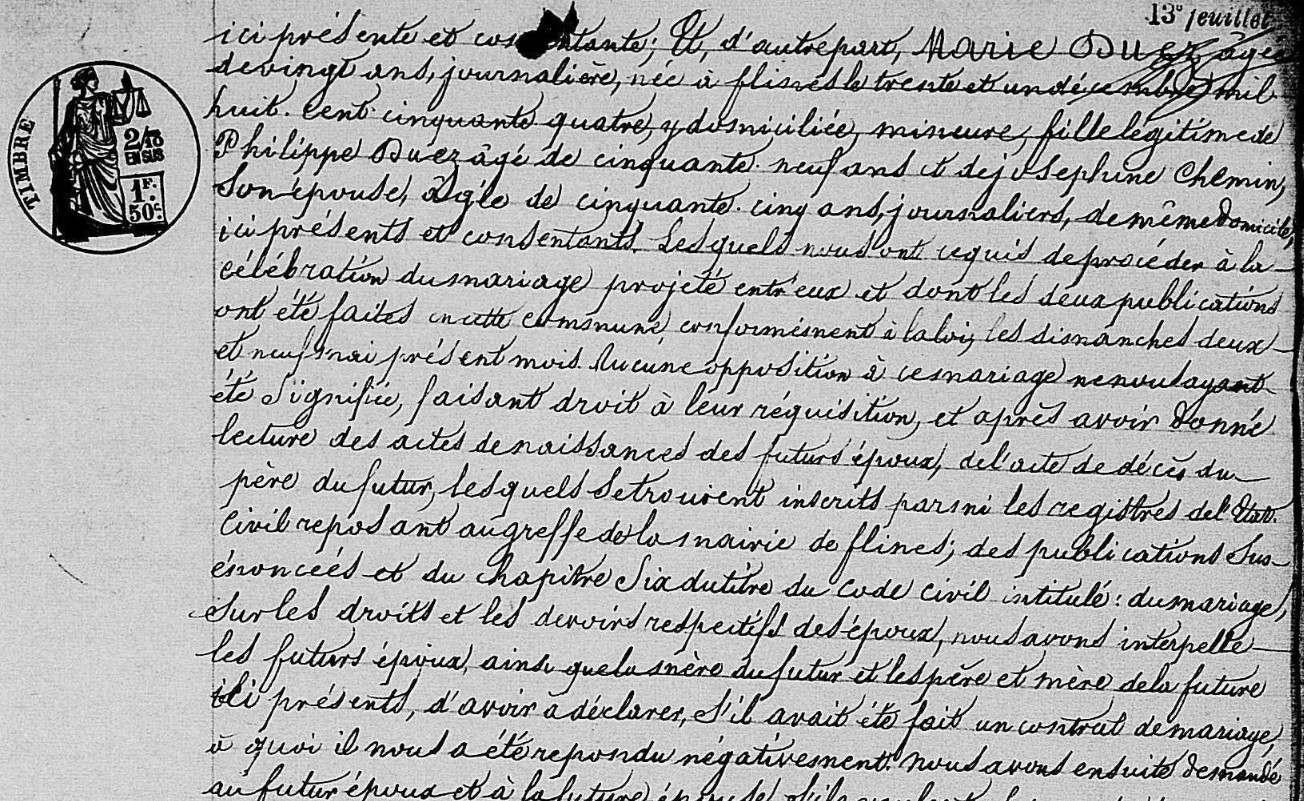 13e feuillet
ici présente et consentante; Et, d'autre part, Marie Duez, âgée
de vingt ans, journalière, née à flines le trente et un décembre mil
huit-cent-cinquante quatre, y domiciliée, mineure, fille légitime de
Philippe Duez âgé de cinquante-neuf ans et de joséphine Chemin,
son épouse, âgée de cinquante-cinq ans, journaliers, de même domicile,
ici présents et consentants. Lesquels nous ont requis de procéder à la
célébration du mariage projeté entr'eux et dont les deux publications
ont été faites en cette commune conformément à la loi, les dimanches deux
et neuf mai présent mois. Aucune opposition à ce mariage ne nous ayant
été signifiée, faisant droit à leur réquisition, et après avoir donné
lecture des actes de naissances des futurs époux, de l'acte de décès du
père du futur, lesquels se trouvent inscrits parmi les registres de l'Etat-
Civil reposant au greffe de la mairie de flines; des publications sus-
énoncées et du chapitre Six du titre du Code civil intitulé: du mariage,
sur les droits et les devoirs respectifs des époux, nous avons interpellé
les futurs époux, ainsi que la mère du futur et les père et mère de la future
ici présents, d'avoir à déclarer, s'il avait été fait un contrat de mariage,
à quoi il nous a été repondu négativement. Nous avons ensuite demandé
au futur époux et à la future épouse s'ils veulent
TIMBRE
2/10
EN SUS
1F.
50c